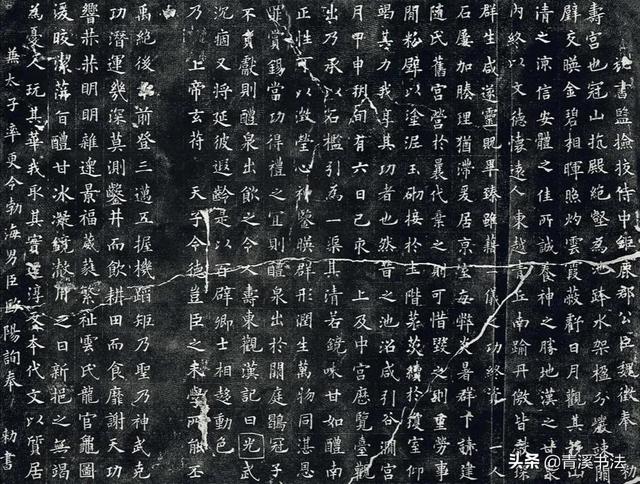 祕書監撿挍侍中鉅鹿郡公臣魏徵奉 勑
壽宮也冠山抗殿絕壑為池跨水架楹分巖竦闕
壁交映金碧相暉照灼雲霞蔽虧日月觀其移山
清之涼信安體之佳所誠養神之勝地漢之甘泉
內終以文德懷遠人東越青丘南踰丹儌皆獻琛
群生咸遂靈貺畢臻雖藉二儀之功終資一人
石屢加腠理猶滯爰居京室每弊炎暑群下請建
隨氏舊宮營於曩代棄之則可惜毀之則重勞事
閒粉壁以塗泥玉砌接於土階茅茨續於瓊室仰
竭其力我享其功者也然昔之池沼咸引谷澗宮
月甲申朔旬有六日己亥 上及中宮歷覽臺觀
出乃承以石檻引為一渠其清若鏡味甘如醴南
正性可以澂瑩心神鑒映群形潤生萬物同湛恩
罪賞錫當功得禮之宜則醴泉出於闕庭鶡冠子
不貢獻則醴泉出飲之令人壽東觀漢記曰光武
沉痼又將延彼遐齡是以百辟卿士相趍動色
乃 上帝玄符 天子令德豈臣之末學所能丕
萬絕後光前登三邁五握機蹈矩乃聖乃神武克
功潛運幾深莫測鑿井而飲耕田而食靡謝天功
響赤赤明明雜遝景福葳蕤繁祉雲氏龍官龜圖
湲皎潔蓱旨醴甘冰凝鏡澈用之日新挹之無竭
為憂人玩其華我取其實還淳反本代文以質居
兼太子率更令勃海男臣歐陽詢奉 勑書
头条@青溪书法